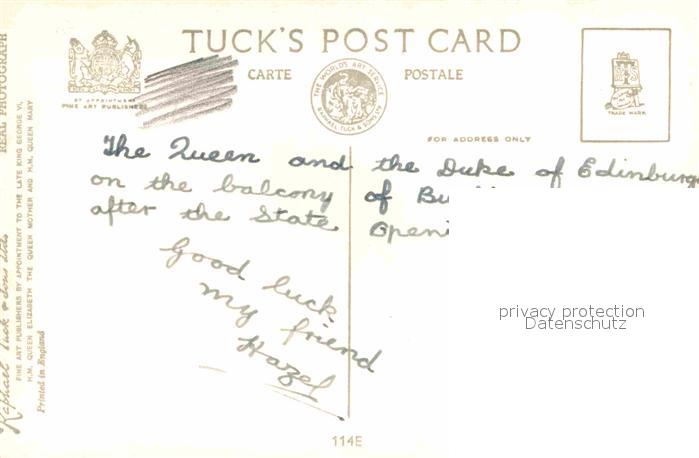 TUCK'S POST CARD
CARTE POSTALE
BY APPOINTMENT
FINE ART PUBLISHERS
THE WORLD'S ART SERVICE
RAPHAEL TUCK & SONS LTD
TRADE MARK
FOR ADDRESS ONLY
The Queen and the Duke of Edinburg
on the balcony of Bu
after the State Openi
Good luck
my friend
Hazel
privacy protection
Datenschutz
114E
REAL PHOTOGRAPH
Raphael Tuck & Sons Ltd.
FINE ART PUBLISHERS BY APPOINTMENT TO THE LATE KING GEORGE VI,
H.M. QUEEN ELIZABETH THE QUEEN MOTHER AND H.M. QUEEN MARY
Printed in England